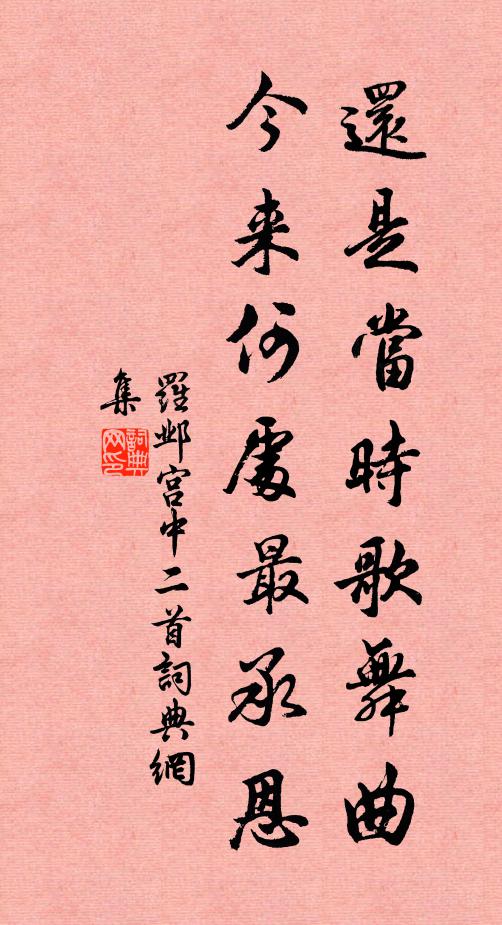 還是當時歌舞曲
今来何處最承恩
羅邺宫中二首詞典網
集
詞典
网印